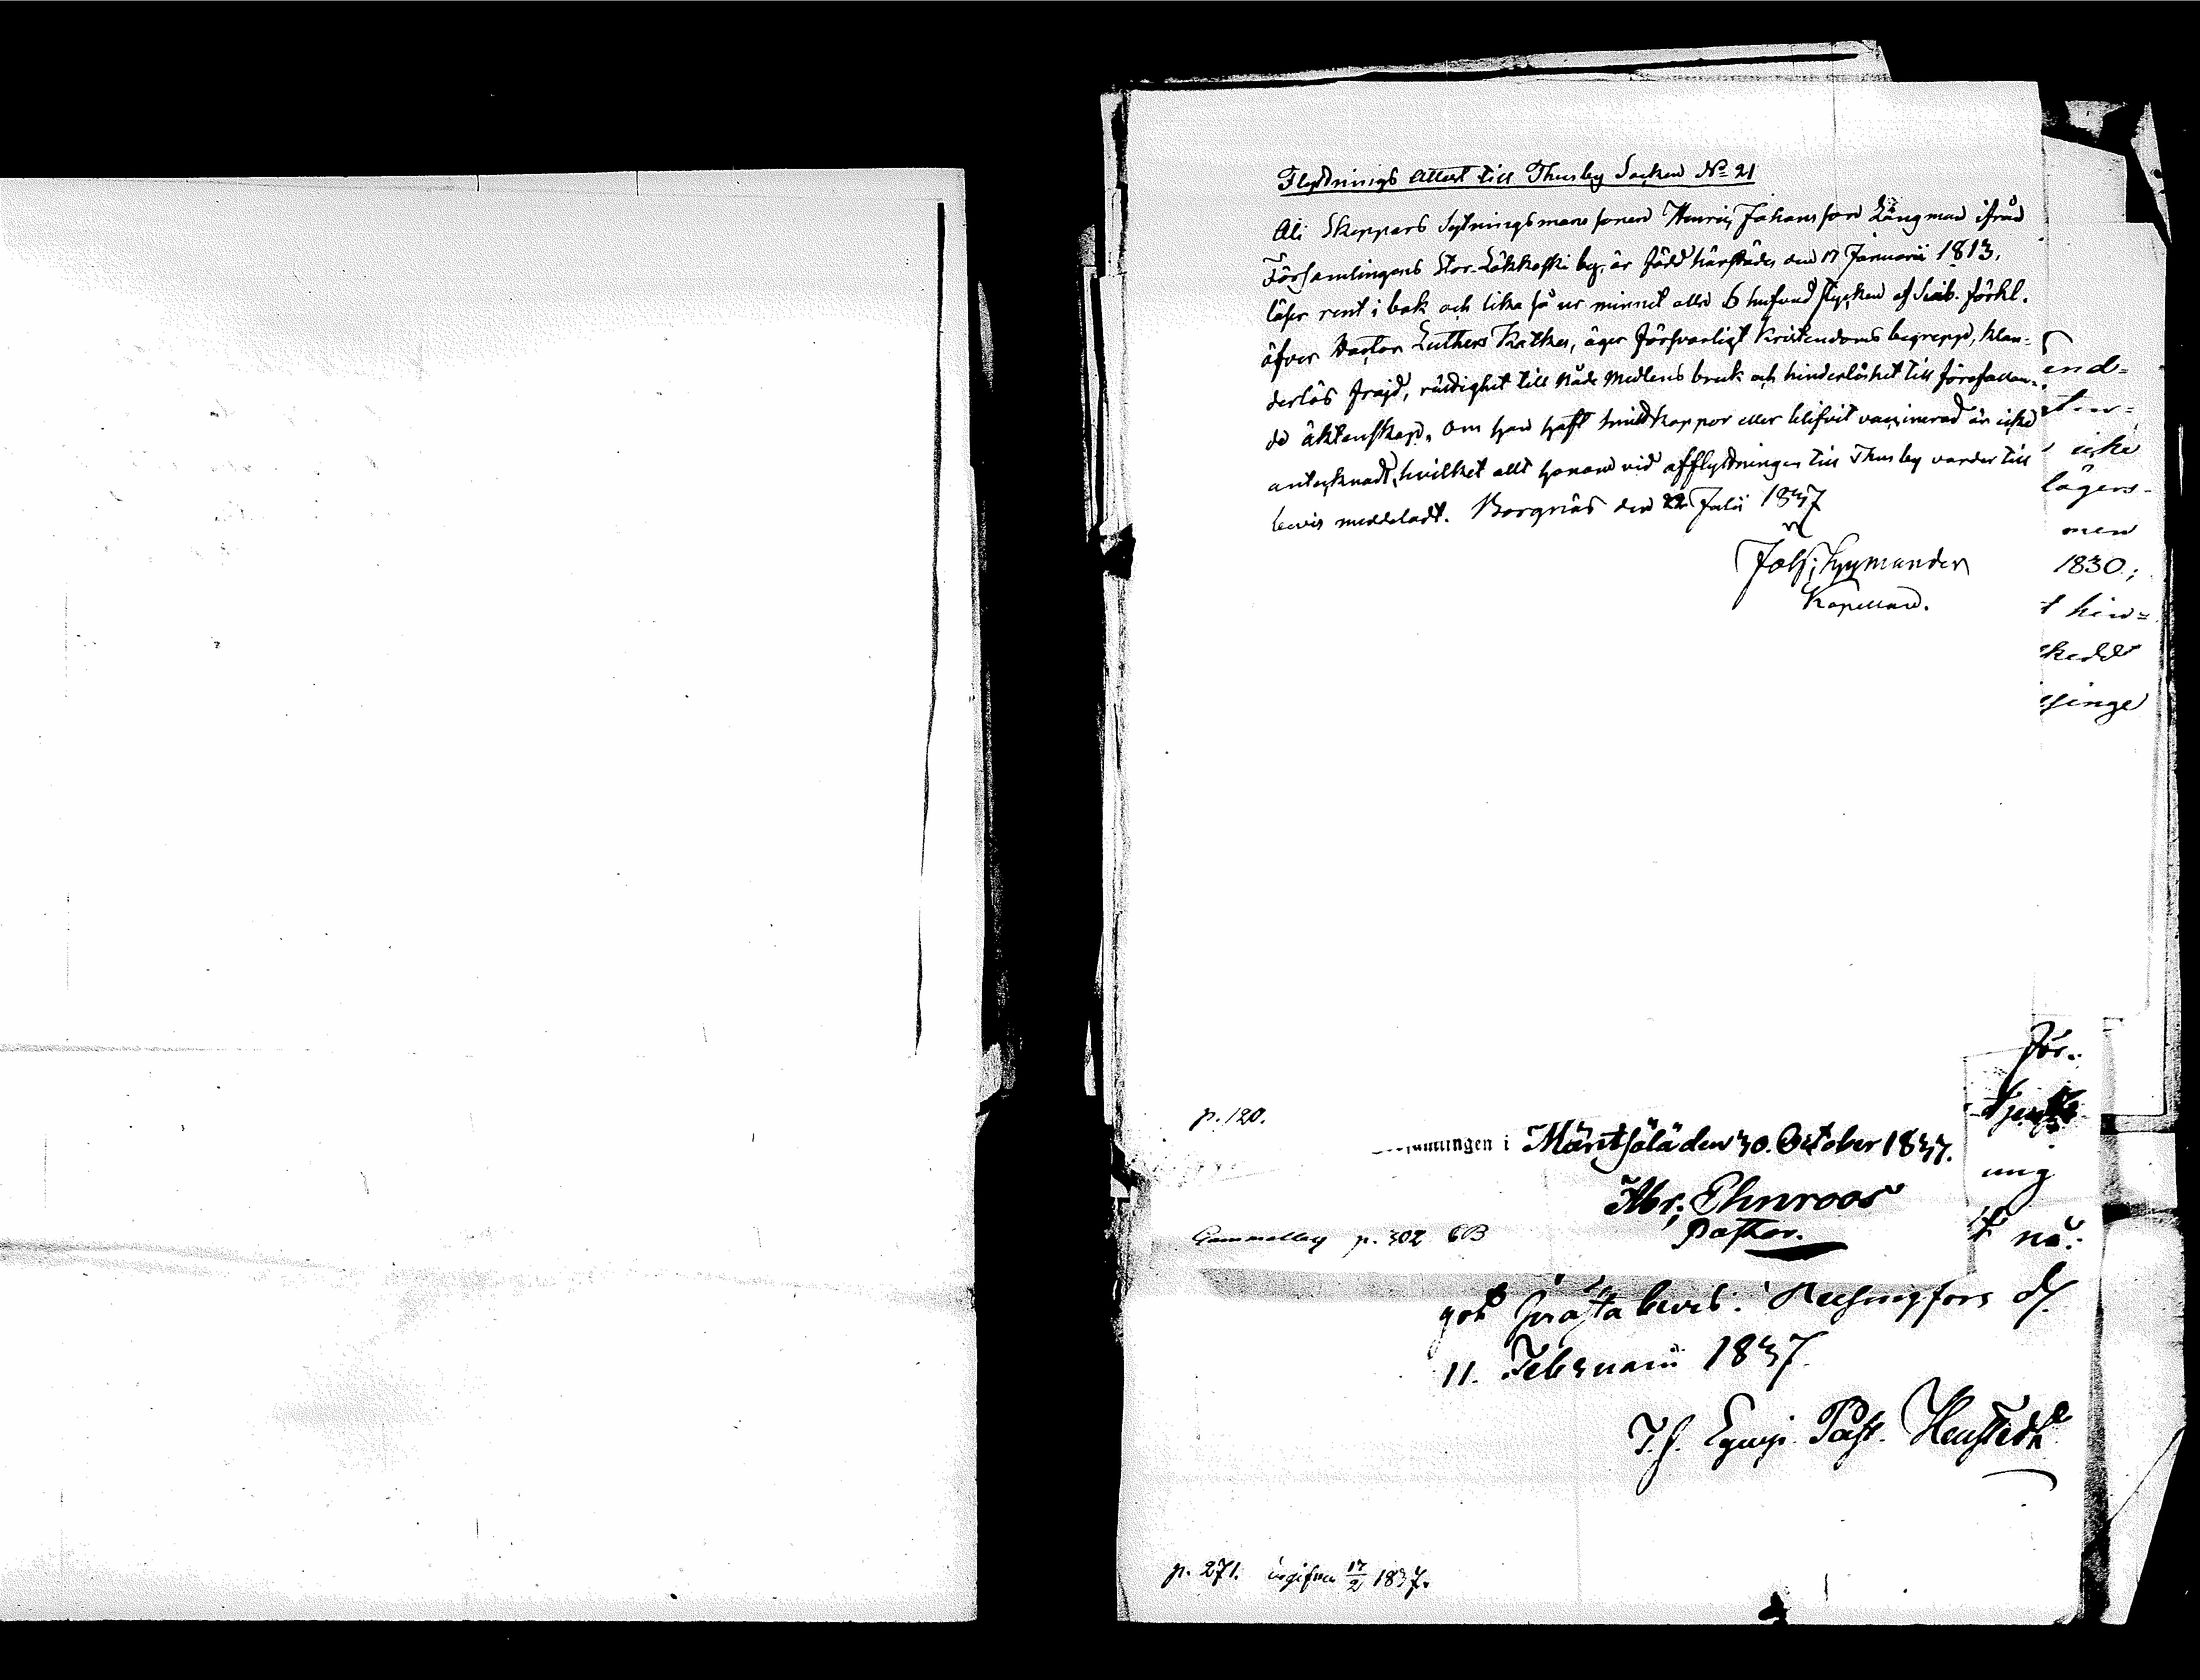 Flyttnings Attest till Thusby Socken No 21
Ali Skeppars Sytningsmans sonen Henric Johansson Långman ifrån
Församlingens Stor-Lökkoski by, är född härstädes den 17 Januarii 1813,
läser rent i bok och lika så ur minnet alla 6 hufvud stycken af Sveb. förkl.
öfver Doctor Luthers Kathes, äger försvarligt Kristendoms begrepp, klan-
derlös frejd, rättighet till Nåde Medlens bruk och hinderlöshet till förefallan-
de äktenskap. Om han haft Smittkoppor eller blifvit vaccinerad är icke
antecknadt, hvilket allt honom vid afflyttningen till Thusby varder till
bevis meddeladt. Borgnäs den 22 Julii 1837
Kapellan.
end-
icke
lägers-
men
1830;
t hin-
skedt
singe
för-
p. 120.
amlingen i Mäntsälä den 30. October 1837.
ung
Abr. Ehnroos
Pastor.
t nå-
Gammelby p. 302 6B
got Prästabevis. Helsingfors d.
11. Februarii 1837.
p. 271. ingifven 17/2 1837.